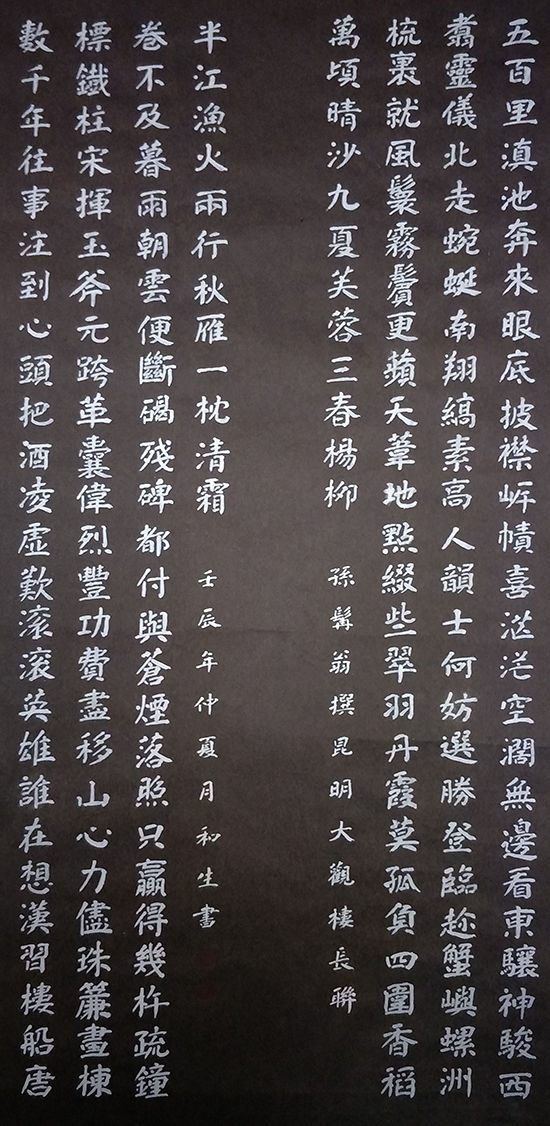 五百里滇池奔來眼底披襟岸幘喜茫茫空濶無邊看東驤神駿西
翥靈儀北走蜿蜒南翔縞素高人韻士何妨選勝登臨趁蟹嶼螺洲
梳裹就風鬟霧鬢更蘋天葦地點綴些翠羽丹霞莫孤負四圍香稻
萬頃晴沙九夏芙蓉三春楊柳 孫髯翁撰昆明大觀樓長聯
數千年往事注到心頭把酒凌虛歎滾滾英雄誰在想漢習樓船唐
標鐵柱宋揮玉斧元跨革囊偉烈豐功費盡移山心力儘珠簾畫棟
卷不及暮雨朝雲便斷碣殘碑都付與蒼煙落照只贏得幾杵疏鐘
半江漁火兩行秋雁一枕清霜 壬辰年仲夏月和生書